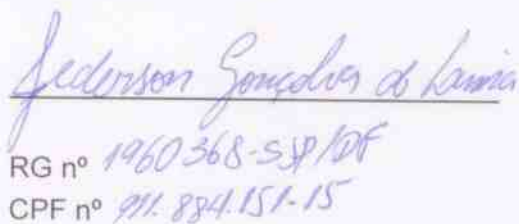 Jederson Gonçalves de Lima
RG nº 1960368-SSP/DF
CPF nº 911.884.151-15